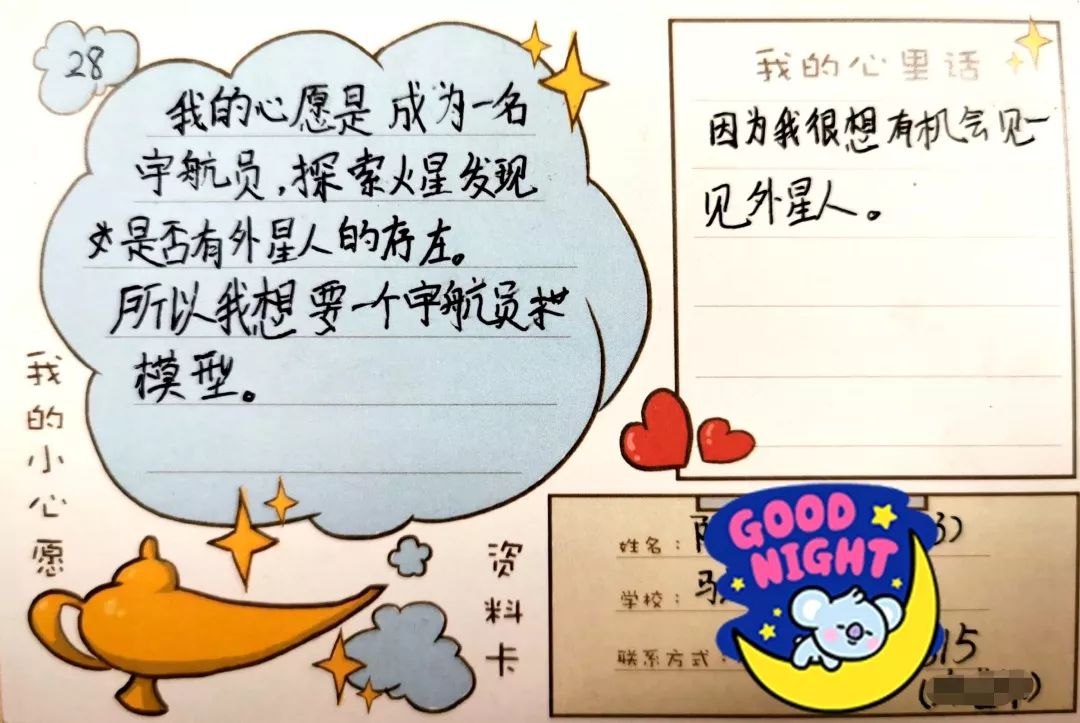 28
我的心愿是成为一名
宇航员,探索火星发现
是否有外星人的存在。
所以我想要一个宇航员
模型。
我的小心愿
资料卡
我的心里话
因为我很想有机会见一
见外星人。
姓名:
学校:
联系方式: 15
GOOD
NIGHT